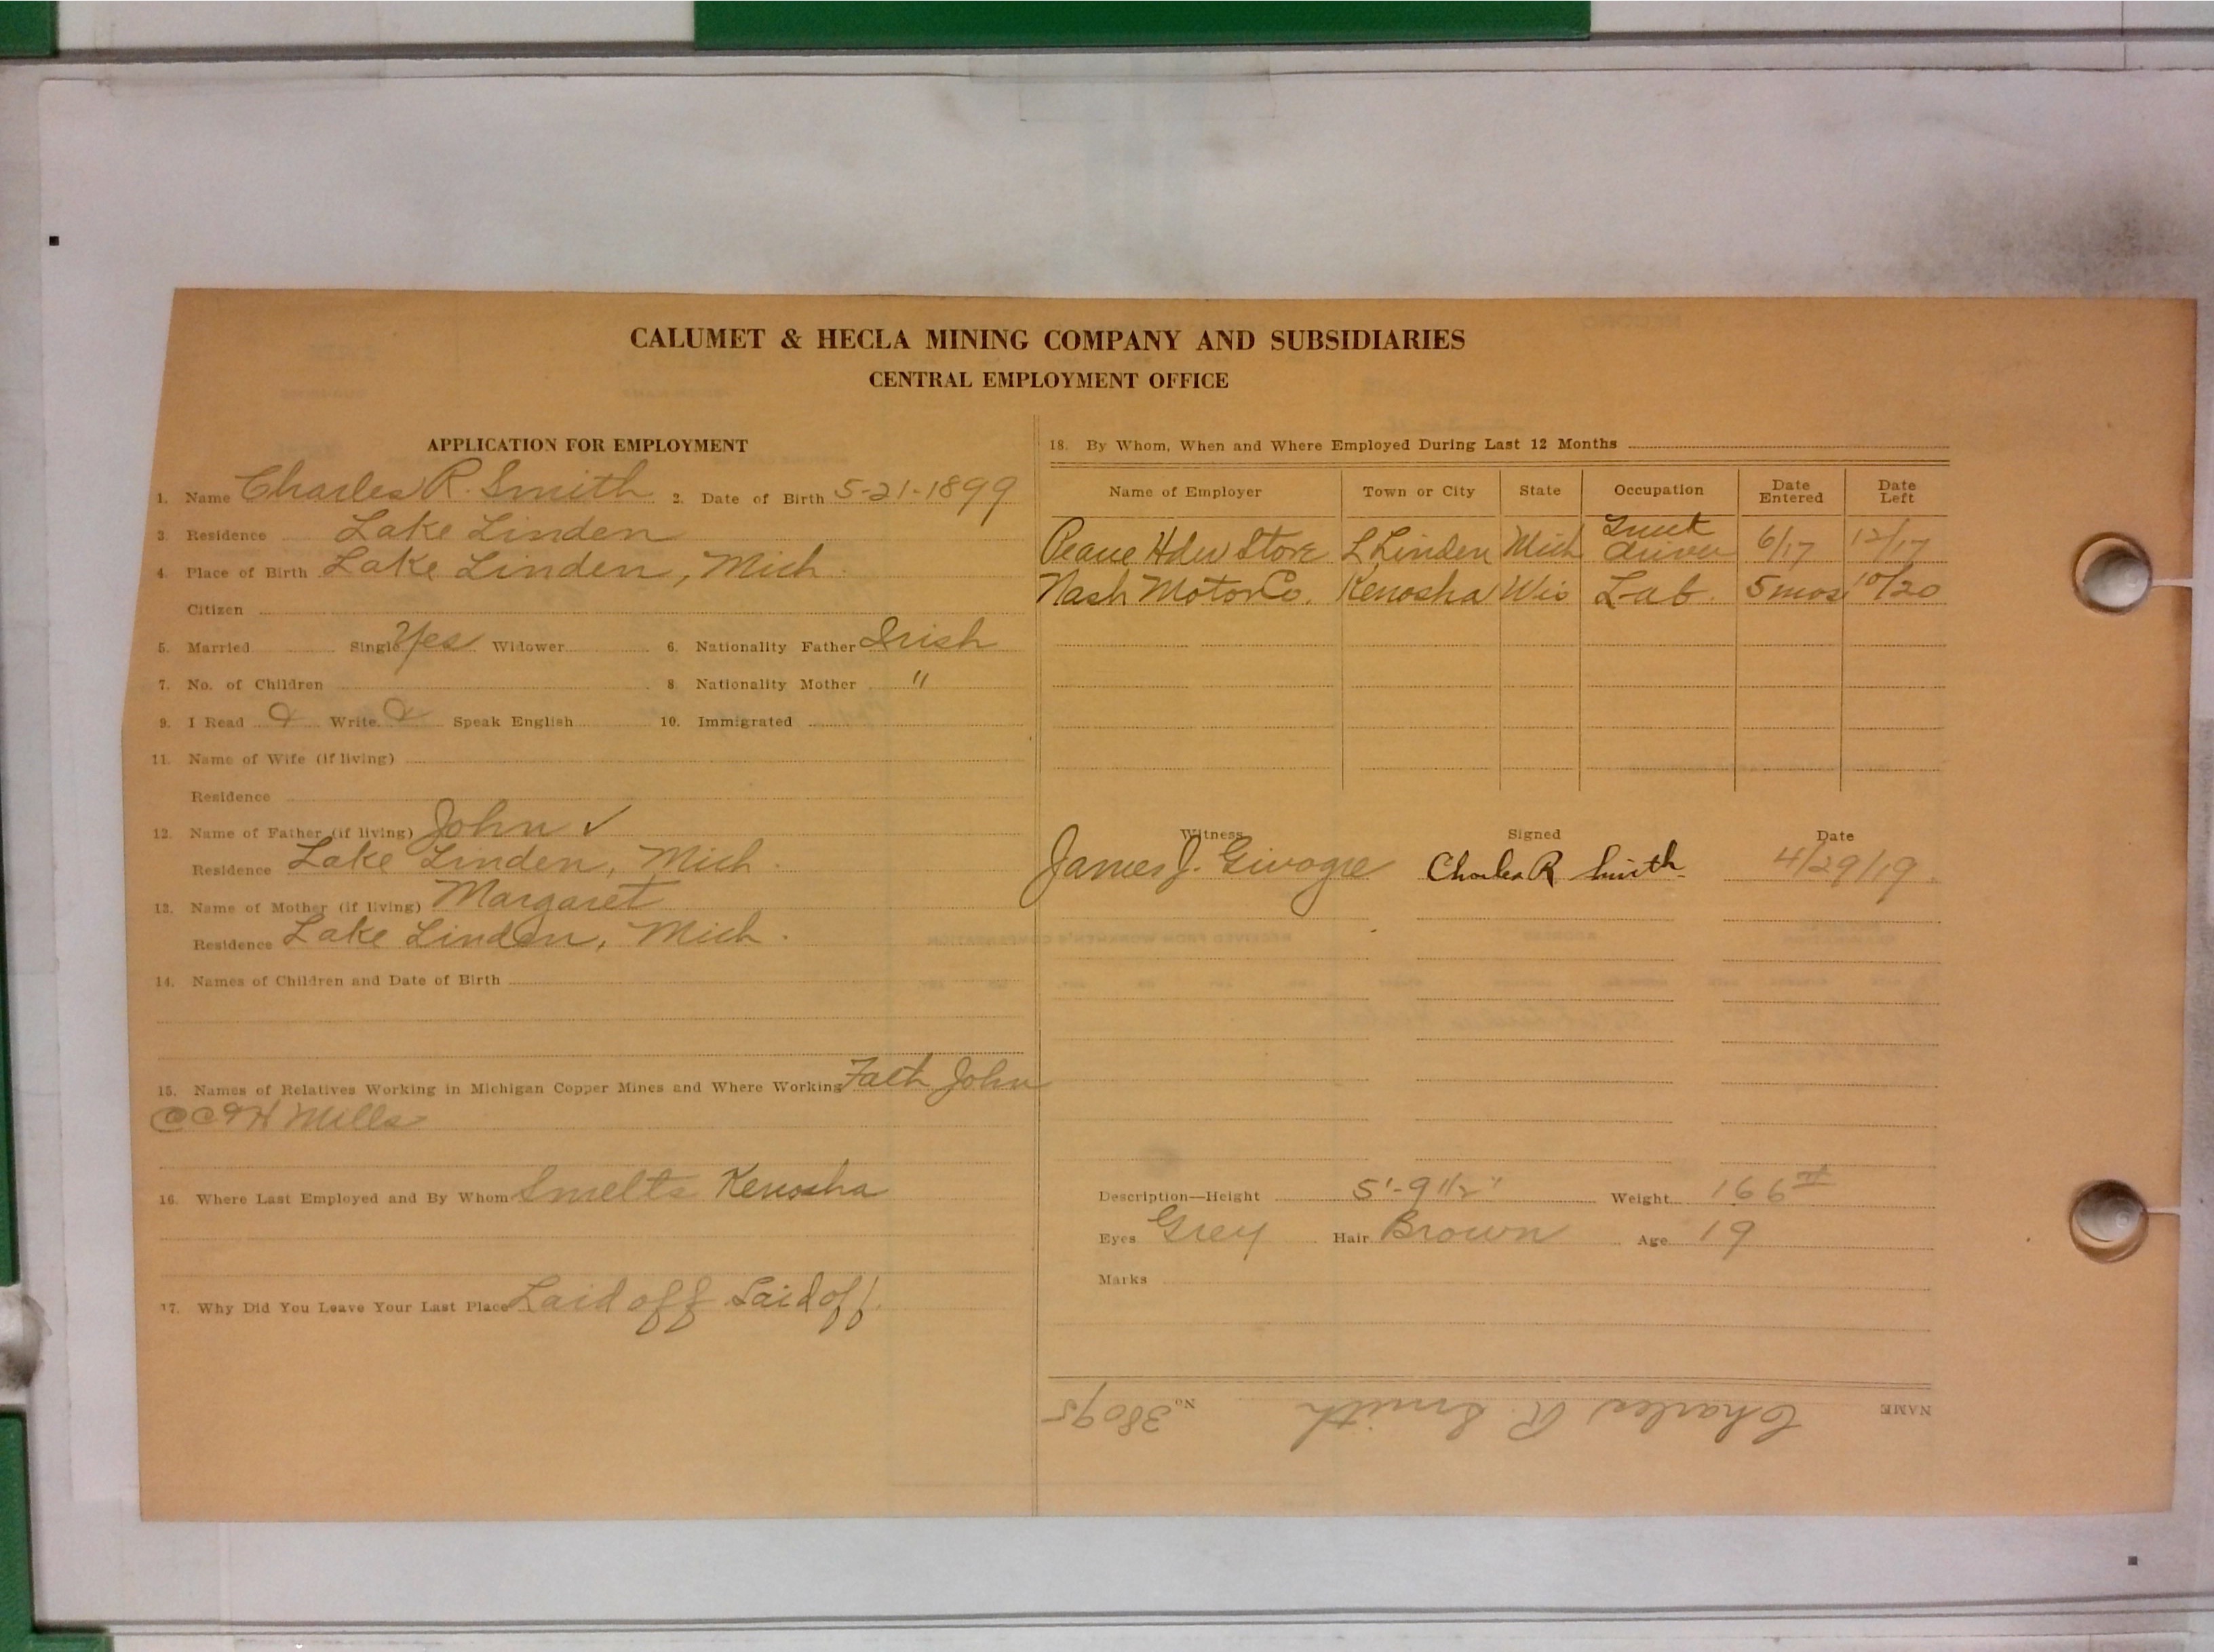 CALUMET & HECLA MINING COMPANY AND SUBSIDIARIES
CENTRAL EMPLOYMENT OFFICE
APPLICATION FOR EMPLOYMENT
1. Name Charles R. Smith 2. Date of Birth 5-21-1899
3. Residence Lake Linden
4. Place of Birth Lake Linden, Mich.
Citizen
5. Married Single Yes Widower 6. Nationality Father Irish
7. No. of Children 8. Nationality Mother "
9. I Read Write Speak English 10. Immigrated
11. Name of Wife (if living)
Residence
12. Name of Father (if living) John ✓
Residence Lake Linden, Mich.
13. Name of Mother (if living) Margaret
Residence Lake Linden, Mich.
14. Names of Children and Date of Birth
15. Names of Relatives Working in Michigan Copper Mines and Where Working Fath John
C&H Mills
16. Where Last Employed and By Whom Smelts Kenosha
17. Why Did You Leave Your Last Place Laid off Laid off.
18. By Whom, When and Where Employed During Last 12 Months
Name of Employer Town or City State Occupation Date Entered Date Left
Hdw Store L Linden Mich Truck driver 6/17 12/17
Nash Motor Co. Kenosha Wis Lab. 5 mos 10/20
Witness Signed Date
James J. Charles R Smith 4/29/19
Description—Height 5'-9 1/2" Weight 166 #
Eyes Grey Hair Brown Age 19
Marks
NAME Charles R. Smith No. 38095